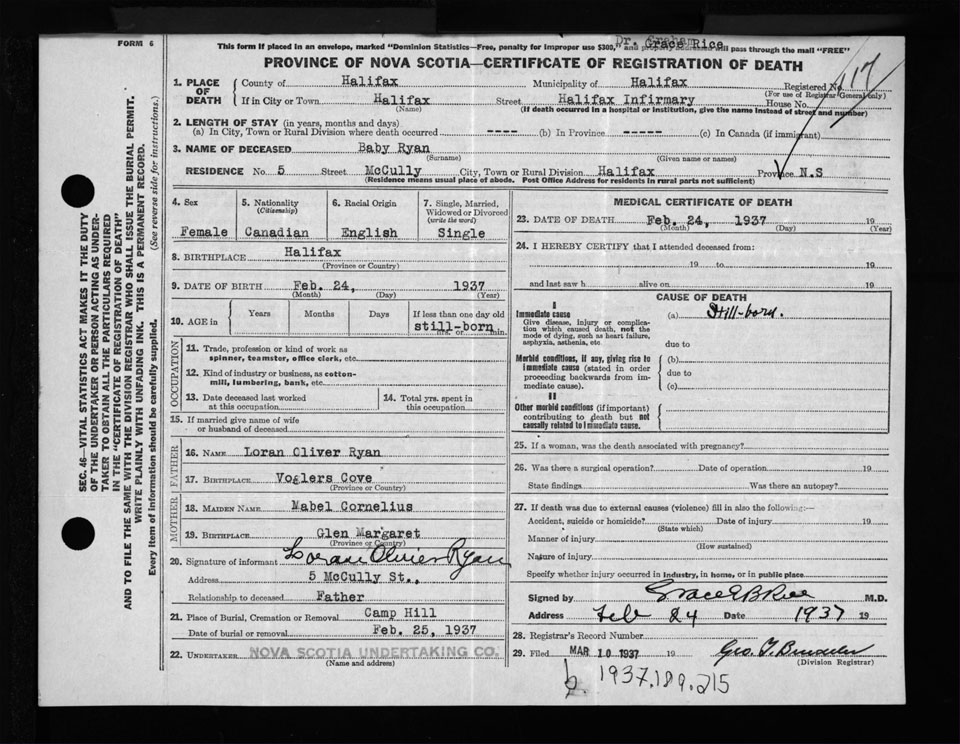 FORM 6
This form if placed in an envelope, marked "Dominion Statistics—Free, penalty for improper use $300," and properly addressed will pass through the mail "FREE"
Dr. Graham
Grace Rice
PROVINCE OF NOVA SCOTIA—CERTIFICATE OF REGISTRATION OF DEATH
1. PLACE OF DEATH
County of Halifax Municipality of Halifax Registered No.
(For use of Registrar General only)
If in City or Town Halifax Street Halifax Infirmary House No.
(Name) (If death occurred in a hospital or institution, give the name instead of street and number)
2. LENGTH OF STAY (in years, months and days)
(a) In City, Town or Rural Division where death occurred ---- (b) In Province ----- (c) In Canada (if immigrant)
3. NAME OF DECEASED Baby Ryan
(Surname) (Given name or names)
RESIDENCE No. 5 Street McCully City, Town or Rural Division Halifax Province N.S
(Residence means usual place of abode. Post Office Address for residents in rural parts not sufficient)
4. Sex
Female
5. Nationality
(Citizenship)
Canadian
6. Racial Origin
English
7. Single, Married,
Widowed or Divorced
(write the word)
Single
8. BIRTHPLACE Halifax
(Province or Country)
9. DATE OF BIRTH Feb. 24, 1937
(Month) (Day) (Year)
10. AGE in
Years Months Days If less than one day old
still-born
hrs. or min.
OCCUPATION
11. Trade, profession or kind of work as
spinner, teamster, office clerk, etc.
12. Kind of industry or business, as cotton-
mill, lumbering, bank, etc.
13. Date deceased last worked
at this occupation
14. Total yrs. spent in
this occupation
15. If married give name of wife
or husband of deceased
FATHER
16. NAME Loran Oliver Ryan
17. BIRTHPLACE Voglers Cove
(Province or Country)
MOTHER
18. MAIDEN NAME Mabel Cornelius
19. BIRTHPLACE Glen Margaret
(Province or Country)
20. Signature of informant Loran Oliver Ryan
Address 5 McCully St.,
Relationship to deceased Father
21. Place of Burial, Cremation or Removal Camp Hill
Date of burial or removal Feb. 25, 1937
22. UNDERTAKER NOVA SCOTIA UNDERTAKING CO.
(Name and address)
MEDICAL CERTIFICATE OF DEATH
23. DATE OF DEATH Feb. 24, 1937 19
(Month) (Day) (Year)
24. I HEREBY CERTIFY that I attended deceased from:
19 to 19
and last saw h alive on 19
CAUSE OF DEATH
I
Immediate cause
Give disease, injury or complica-
tion which caused death, not the
mode of dying, such as heart failure,
asphyxia, asthenia, etc.
(a) Still-born.
due to
Morbid conditions, if any, giving rise to
immediate cause (stated in order
proceeding backwards from im-
mediate cause).
(b)
due to
(c)
II
Other morbid conditions (if important)
contributing to death but not
causally related to immediate cause.
25. If a woman, was the death associated with pregnancy?
26. Was there a surgical operation? Date of operation 19
State findings Was there an autopsy?
27. If death was due to external causes (violence) fill in also the following:—
Accident, suicide or homicide? Date of injury 19
(State which)
Manner of injury
(How sustained)
Nature of injury
Specify whether injury occurred in industry, in home, or in public place
Signed by Grace E B Rice M.D.
Address Feb 24 Date 1937 19
28. Registrar's Record Number
29. Filed MAR 10 1937 19
(Division Registrar)
1937.189.215
SEC. 46—VITAL STATISTICS ACT MAKES IT THE DUTY
OF THE UNDERTAKER OR PERSON ACTING AS UNDER-
TAKER TO OBTAIN ALL THE PARTICULARS REQUIRED
IN THE "CERTIFICATE OF REGISTRATION OF DEATH"
AND TO FILE THE SAME WITH THE DIVISION REGISTRAR WHO SHALL ISSUE THE BURIAL PERMIT.
WRITE PLAINLY WITH UNFADING INK. THIS IS A PERMANENT RECORD.
Every item of information should be carefully supplied. (See reverse side for instructions.)